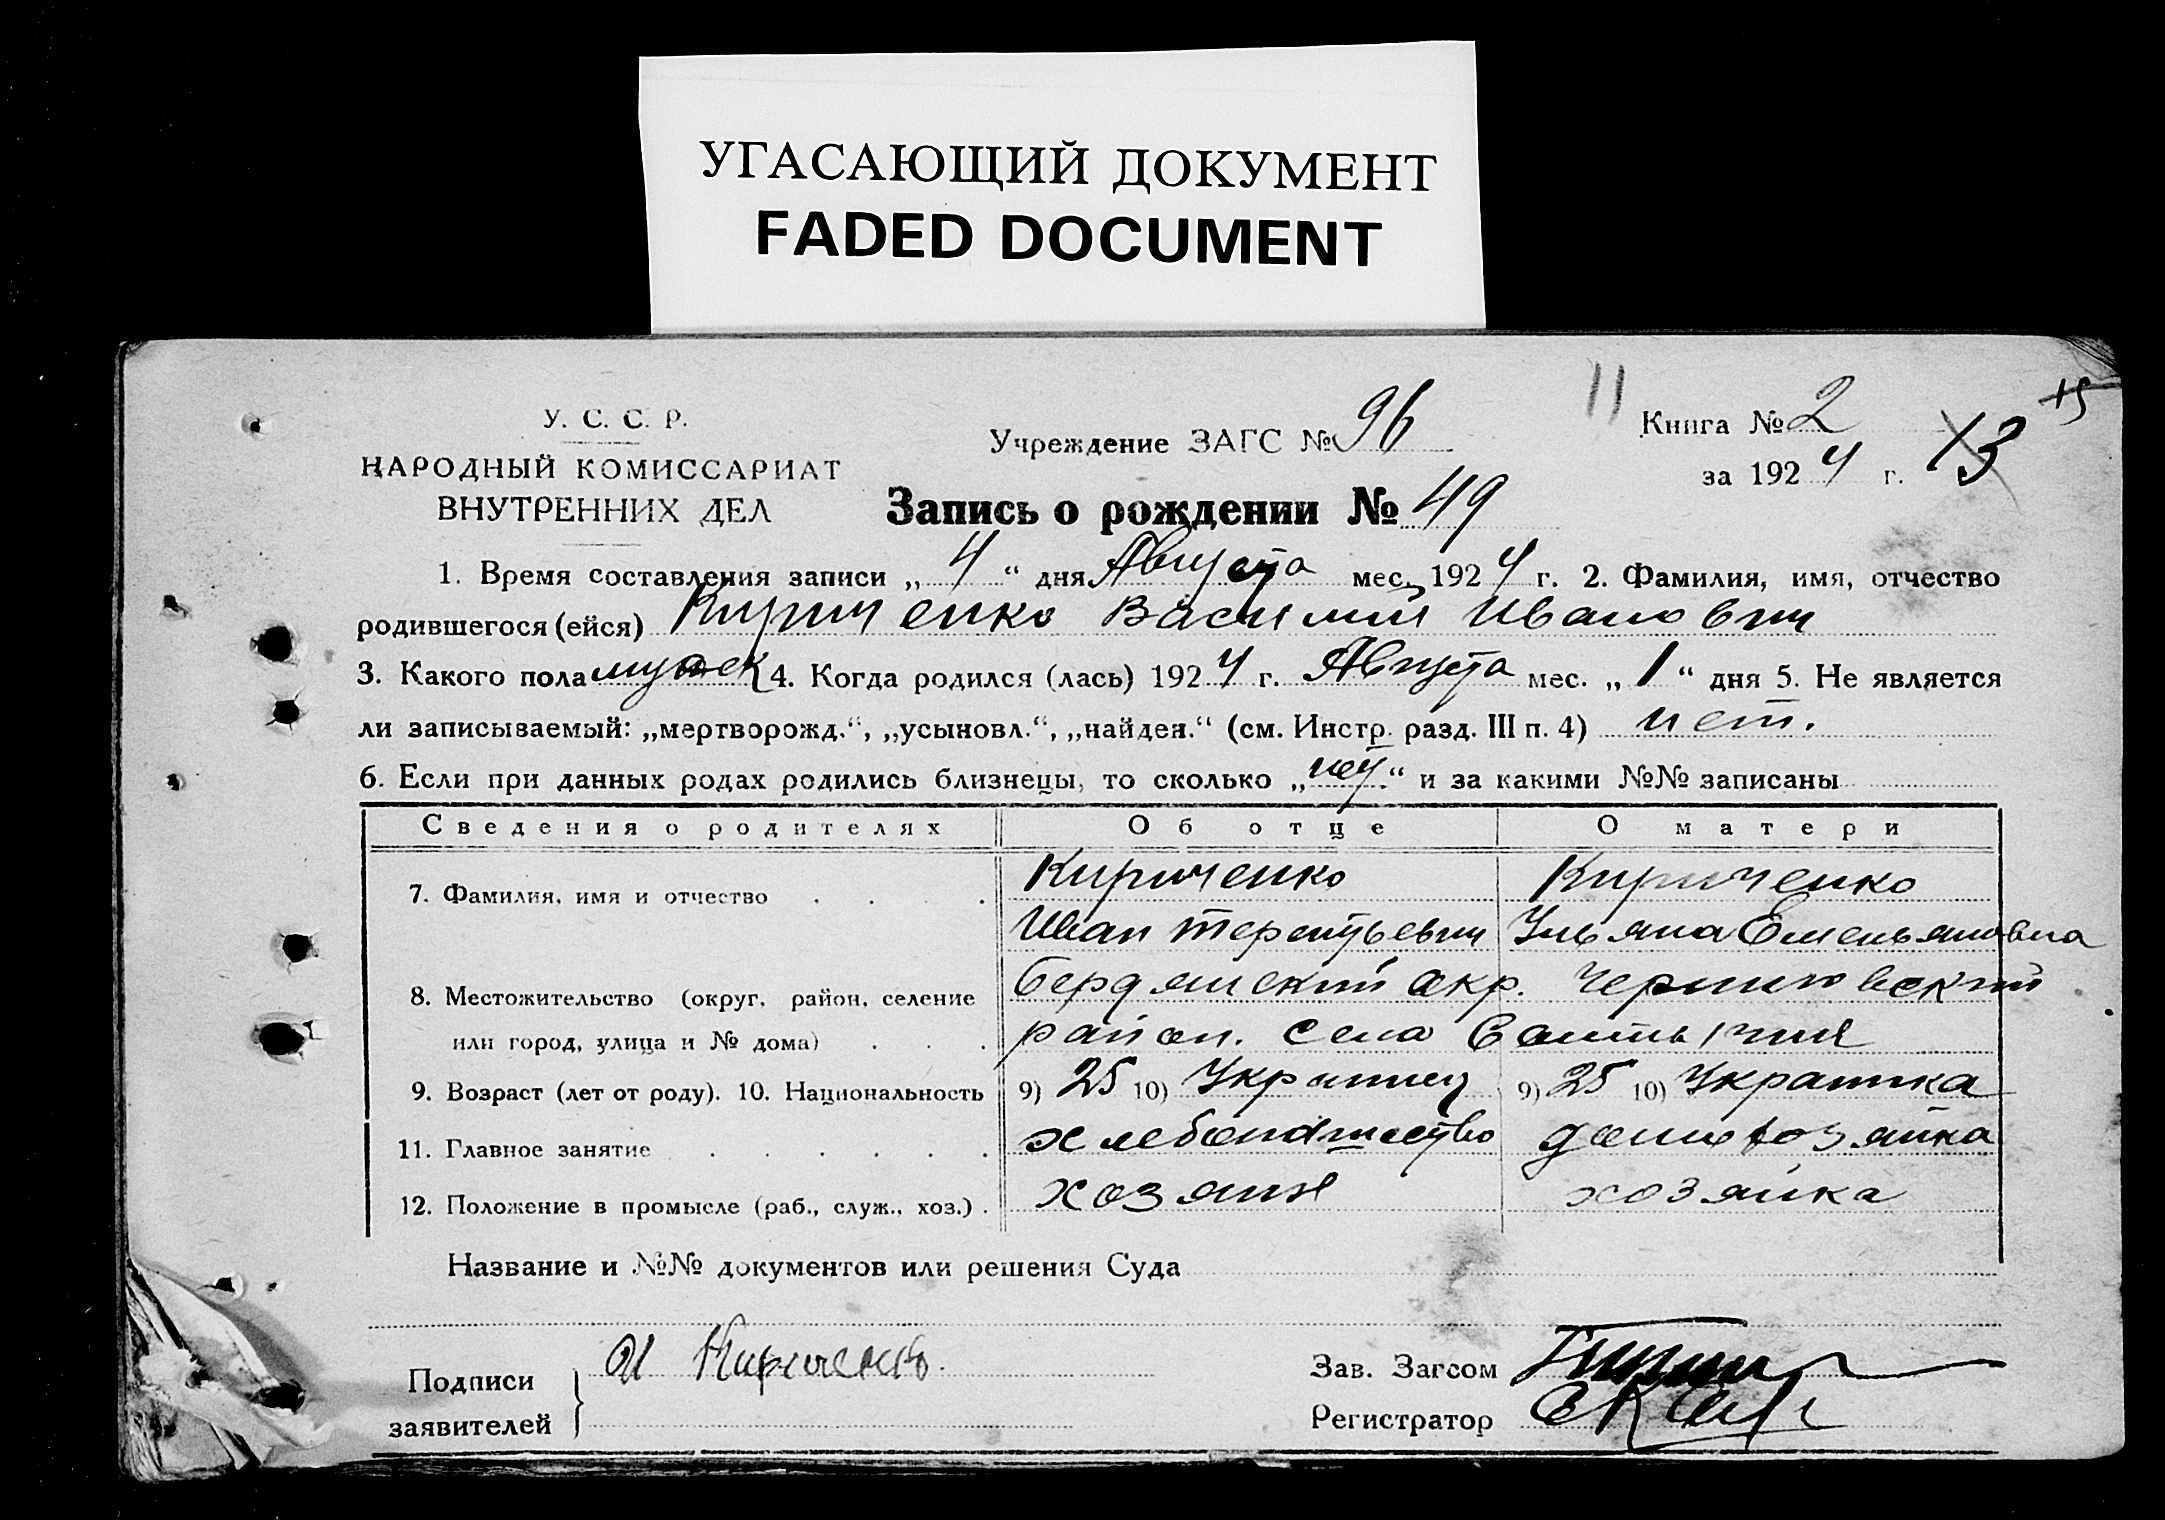 УГАСАЮЩИЙ ДОКУМЕНТ
FADED DOCUMENT
У. С. С. Р.
НАРОДНЫЙ КОМИССАРИАТ
ВНУТРЕННИХ ДЕЛ
Учреждение ЗАГС № 96
11
Книга № 2
15
за 1924 г.
13
Запись о рождении № 49
1. Время составления записи „4“ дня Августа мес. 1924 г. 2. Фамилия, имя, отчество
родившегося (ейся) Кириченко Василий Иванович
3. Какого пола мужск 4. Когда родился (лась) 1924 г. Августа мес. „1“ дня 5. Не является
ли записываемый: „мертворожд.“, „усыновл.“, „найден.“ (см. Инстр. разд. III п. 4) нет.
6. Если при данных родах родились близнецы, то сколько „нет“ и за какими №№ записаны
Сведения о родителях Об отце О матери
7. Фамилия, имя и отчество Кириченко Кириченко
Иван Терентьевич Ульяна Емельяновна
8. Местожительство (округ, район, селение Бердянский окр. Черниговский
или город, улица и № дома) район. Село
9. Возраст (лет от роду). 10. Национальность 9) 25 10) Украинец 9) 25 10) Украинка
11. Главное занятие хлебопашество домохозяйка
12. Положение в промысле (раб., служ., хоз.) хозяин хозяйка
Название и №№ документов или решения Суда
Подписи
заявителей
И Кириченко.
Зав. Загсом
Регистратор